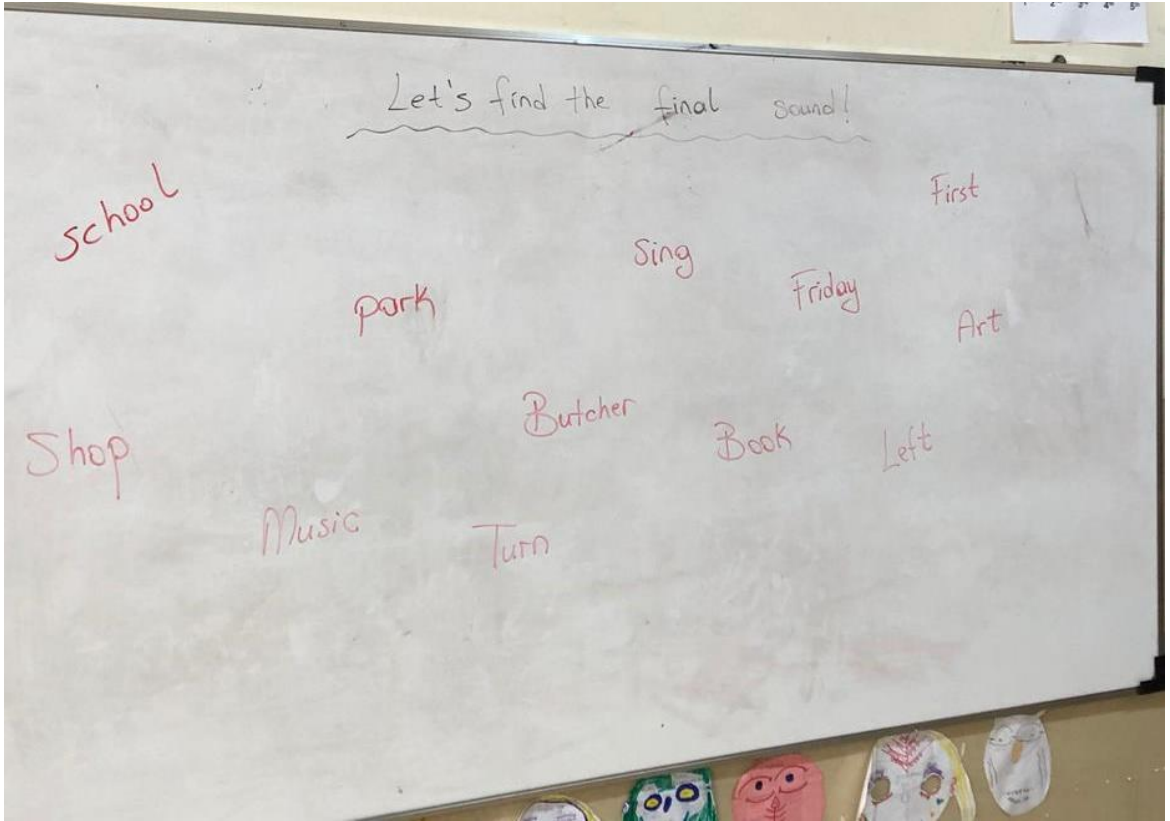 Let's find the final sound!
school
First
Sing
park
Friday
Art
Butcher
Shop
Book
Left
Music
Turn